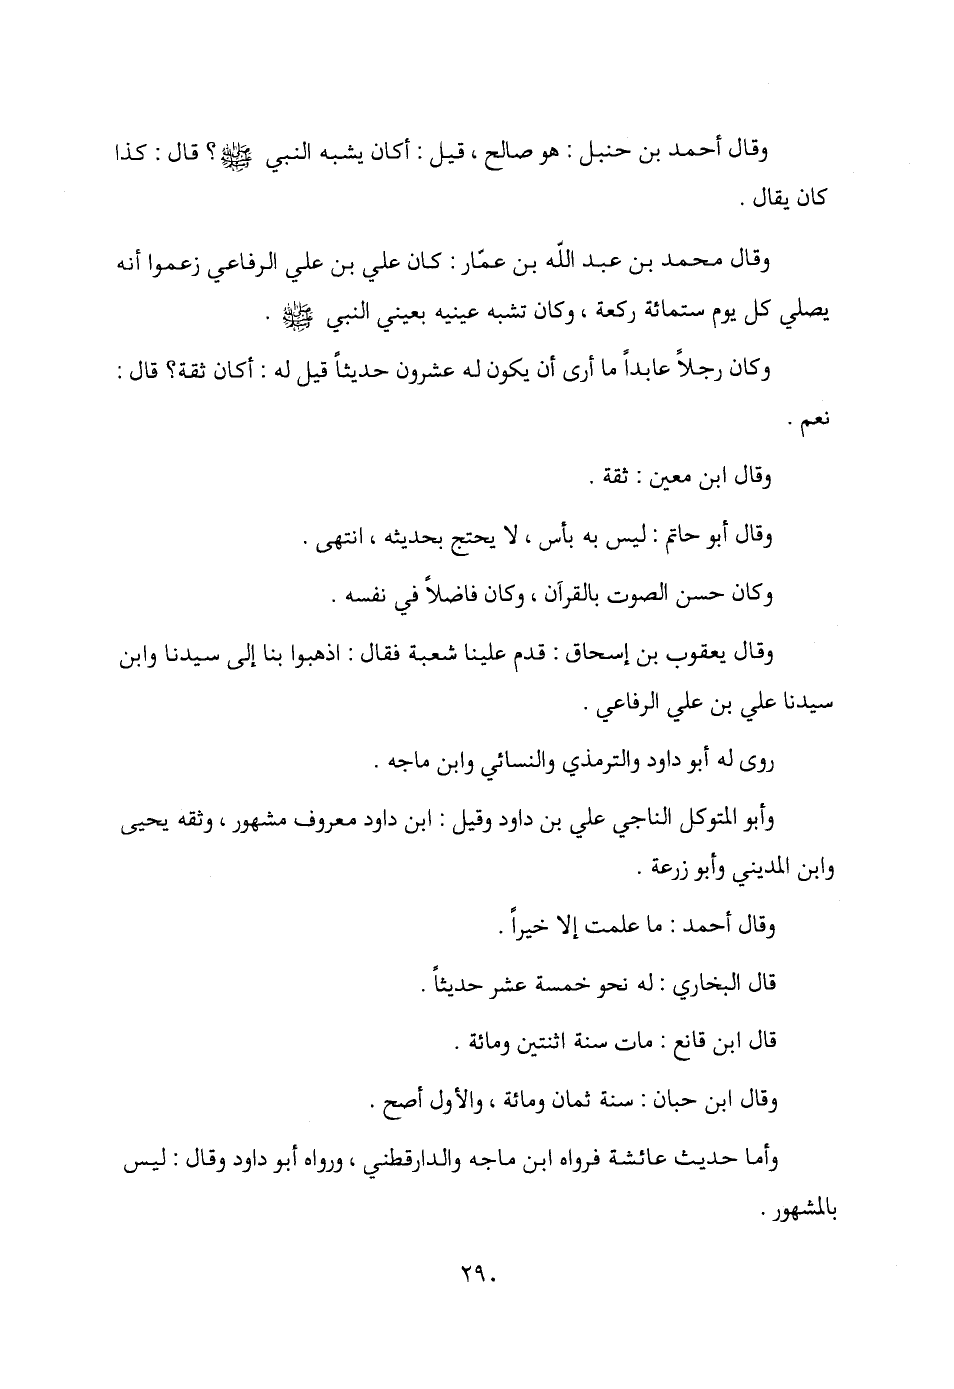 وقال أحمد بن حنبل : هو صالح ، قيل : أكان يشبه النبي ﷺ؟ قال : كذا
كان يقال .
وقال محمد بن عبد اللّه بن عمّار : كان علي بن علي الرفاعي زعموا أنه
يصلي كل يوم ستمائة ركعة ، وكان تشبه عينيه بعيني النبي ﷺ .
وكان رجلاً عابداً ما أرى أن يكون له عشرون حديثاً قيل له : أكان ثقة؟ قال :
نعم .
وقال ابن معين : ثقة .
وقال أبو حاتم : ليس به بأس ، لا يحتج بحديثه ، انتهى .
وكان حسن الصوت بالقرآن ، وكان فاضلاً في نفسه .
وقال يعقوب بن إسحاق : قدم علينا شعبة فقال : اذهبوا بنا إلى سيدنا وابن
سيدنا علي بن علي الرفاعي .
روى له أبو داود والترمذي والنسائي وابن ماجه .
وأبو المتوكل الناجي علي بن داود وقيل : ابن داود معروف مشهور ، وثقه يحيى
وابن المديني وأبو زرعة .
وقال أحمد : ما علمت إلا خيراً .
قال البخاري : له نحو خمسة عشر حديثاً .
قال ابن قانع : مات سنة اثنتين ومائة .
وقال ابن حبان : سنة ثمان ومائة ، والأول أصح .
وأما حديث عائشة فرواه ابن ماجه والدارقطني ، ورواه أبو داود وقال : ليس
بالمشهور .
٢٩٠